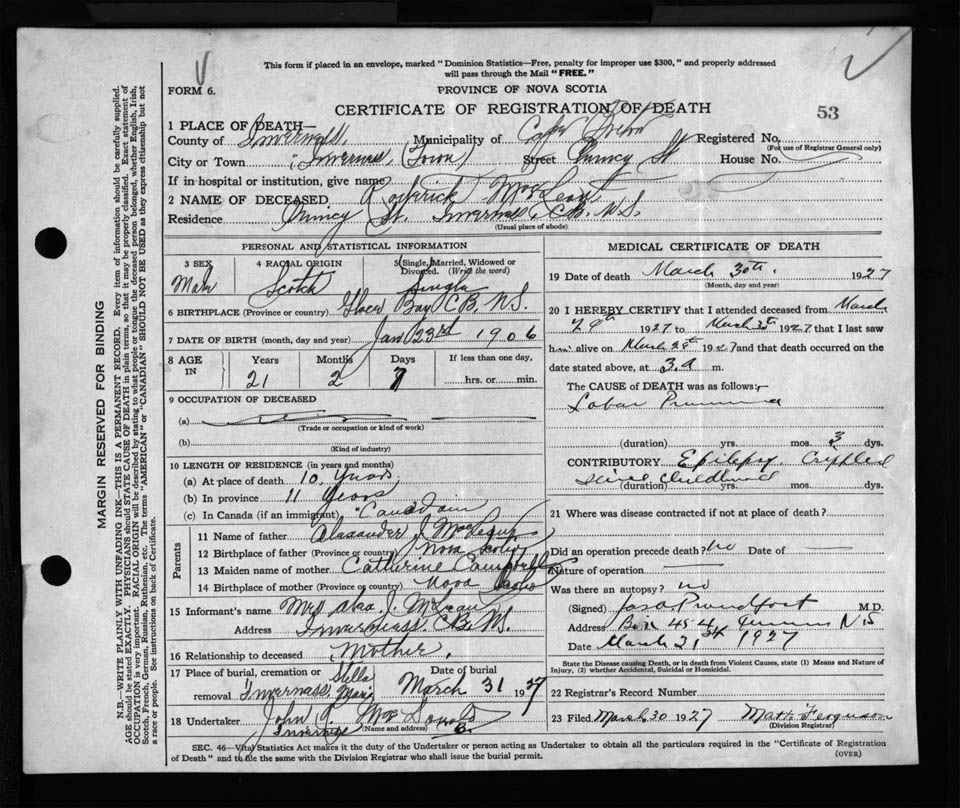 This form if placed in an envelope, marked "Dominion Statistics—Free, penalty for improper use $300," and properly addressed
will pass through the Mail "FREE."
FORM 6.
PROVINCE OF NOVA SCOTIA
CERTIFICATE OF REGISTRATION OF DEATH
53
1 PLACE OF DEATH—
County of Inverness Municipality of Cape Breton Registered No.
(For use of Registrar General only)
City or Town Inverness (Town) Street St House No.
If in hospital or institution, give name
2 NAME OF DECEASED Roderick MacLean
Residence St. Inverness C.B. N.S.
(Usual place of abode)
PERSONAL AND STATISTICAL INFORMATION
3 SEX 4 RACIAL ORIGIN 5 Single, Married, Widowed or Divorced. (Write the word)
Male Scotch Single
6 BIRTHPLACE (Province or country) Glace Bay C.B. N.S.
7 DATE OF BIRTH (month, day and year) Jan 23rd 1906
8 AGE IN Years Months Days If less than one day,
21 2 7 hrs. or min.
9 OCCUPATION OF DECEASED
(a)
(Trade or occupation or kind of work)
(b)
(Kind of industry)
10 LENGTH OF RESIDENCE (in years and months)
(a) At place of death 10 Years
(b) In province 11 Years
(c) In Canada (if an immigrant) "Canadian
Parents
11 Name of father Alexander J. MacLean
12 Birthplace of father (Province or country) Nova Scotia
13 Maiden name of mother Catherine Campbell
14 Birthplace of mother (Province or country) Nova Scotia
15 Informant's name Mrs Alex. J. McLean
Address Inverness C.B. N.S.
16 Relationship to deceased Mother.
17 Place of burial, cremation or removal Stella Maris Inverness Date of burial March 31 1927
18 Undertaker John
Inverness (Name and address)
MEDICAL CERTIFICATE OF DEATH
19 Date of death March 30th. 1927
(Month, day and year)
20 I HEREBY CERTIFY that I attended deceased from March
28th 1927 to March 30th 1927 that I last saw
him alive on March 28th 1927 and that death occurred on the
date stated above, at 3.a m.
The CAUSE of DEATH was as follows:—
Lobar Pneumonia
(duration) yrs. mos. 3 dys.
CONTRIBUTORY Epilepsy. Crippled
since childhood
(duration) yrs. mos. dys.
21 Where was disease contracted if not at place of death?
Did an operation precede death? no Date of
Nature of operation
Was there an autopsy? no
(Signed) Jas A Proudfoot M.D.
Address Box 454 Inverness N S
Date March 31st 1927
State the Disease causing Death, or in death from Violent Causes, state (1) Means and Nature of
Injury, (2) whether Accidental, Suicidal or Homicidal.
22 Registrar's Record Number
23 Filed March 30 1927 Matt. Ferguson
(Division Registrar)
SEC. 46—Vital Statistics Act makes it the duty of the Undertaker or person acting as Undertaker to obtain all the particulars required in the "Certificate of Registration
of Death" and to file the same with the Division Registrar who shall issue the burial permit.
(OVER)
MARGIN RESERVED FOR BINDING
N.B.—WRITE PLAINLY WITH UNFADING INK—THIS IS A PERMANENT RECORD. Every item of information should be carefully supplied.
AGE should be stated EXACTLY. PHYSICIANS should STATE CAUSE OF DEATH in plain terms, so that it may be properly classified. Exact statement of
OCCUPATION is very important. RACIAL ORIGIN will be described by stating to what people or tongue the deceased person belonged, whether English, Irish,
Scotch, French, German, Russian, Ruthenian, etc. The terms "AMERICAN" or "CANADIAN" SHOULD NOT BE USED as they express citizenship but not
a race or people. See instructions on back of Certificate.